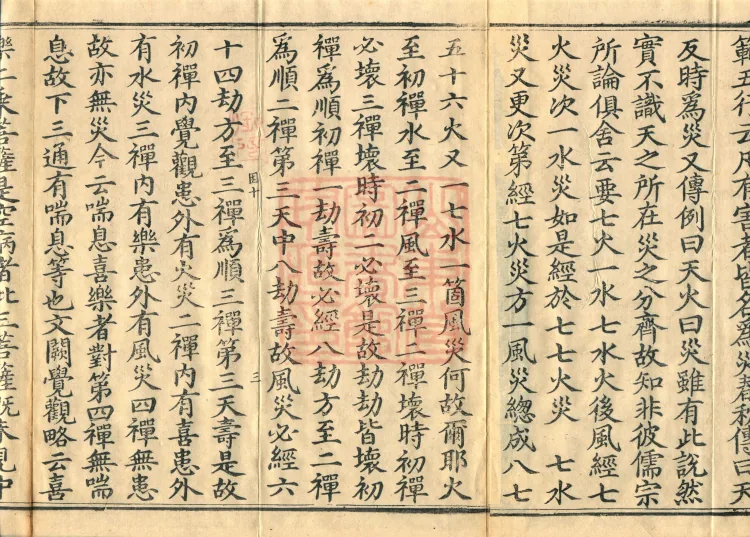 範五行云凡有害者皆名為災春秋傳曰天
反時爲災又傳例曰天火曰災雖有此說然
實不識天之所在災之分齊故知非彼儒宗
所論俱舍云要七火一水七水火後風經七
火災次一水災如是經於七七火災 七水
災又更次第經七火災方一風災總成八七
五十六火又一七水一箇風災何故爾耶火
至初禪水至二禪風至三禪二禪壞時初禪
必壞三禪壞時初二必壞是故劫劫皆壞初
禪爲順初禪一劫壽故必經八劫方至二禪
爲順二禪第三天中八劫壽故風災必經六
十四劫方至三禪爲順三禪第三天壽是故
初禪內覺觀患外有火災二禪內有喜患外
有水災三禪內有樂患外有風災四禪無患
故亦無災今云喘息喜樂者對第四禪無喘
息故下三通有喘息等也文闕覺觀略云喜
樂二乘菩薩是空病者此三菩薩既凖見中
国十
三